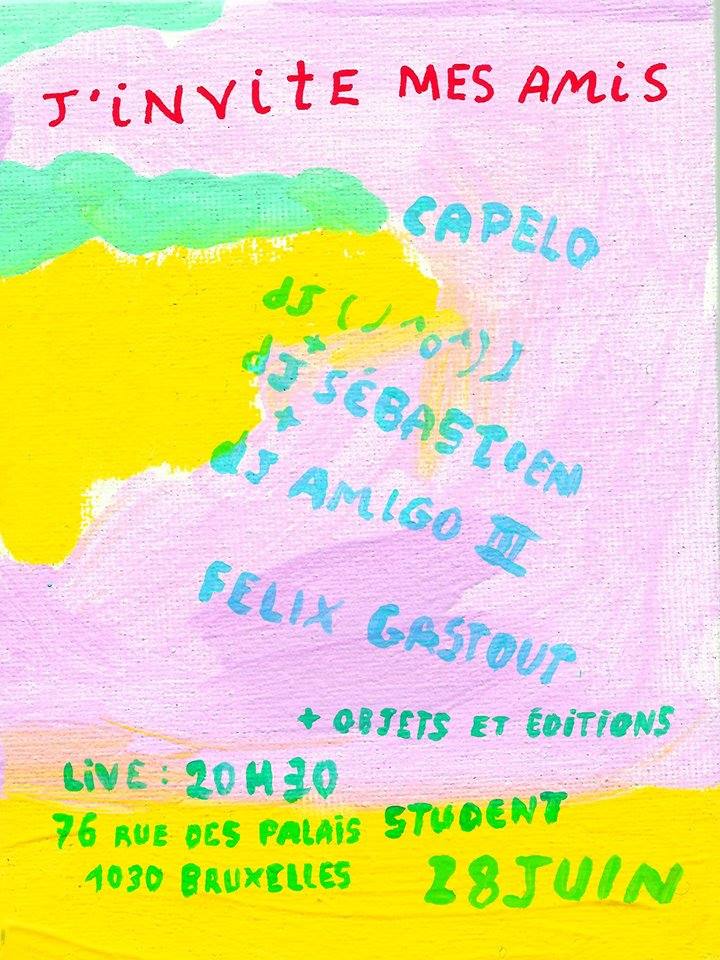 J'iNViTE MES AMiS
CAPELO
dJ (J^o^)J
+
dJ SÉBASTIEN
+
dJ AMIGO III
FELIX GASTOUT
+ OBJETS ET ÉDiTiONS
LiVE : 20H30
76 RUE DES PALAiS STUDENT
1030 BRUXELLES 28JUIN